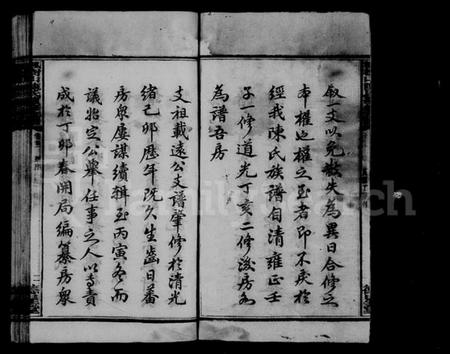 叙一支以免散失為異日合修之
本權也權之至者即不戾於
經我陳氏族譜自清雍正壬
子一修道光丁亥二修後房各
為譜吾房
支祖載遠公支譜肇修於清光
緒己卯歷年既久生齒日蕃
房衆屢謀續輯至丙寅冬而
議始定公舉任事之人以專責
成於丁卯春開局編纂房衆
二
FamilySearch